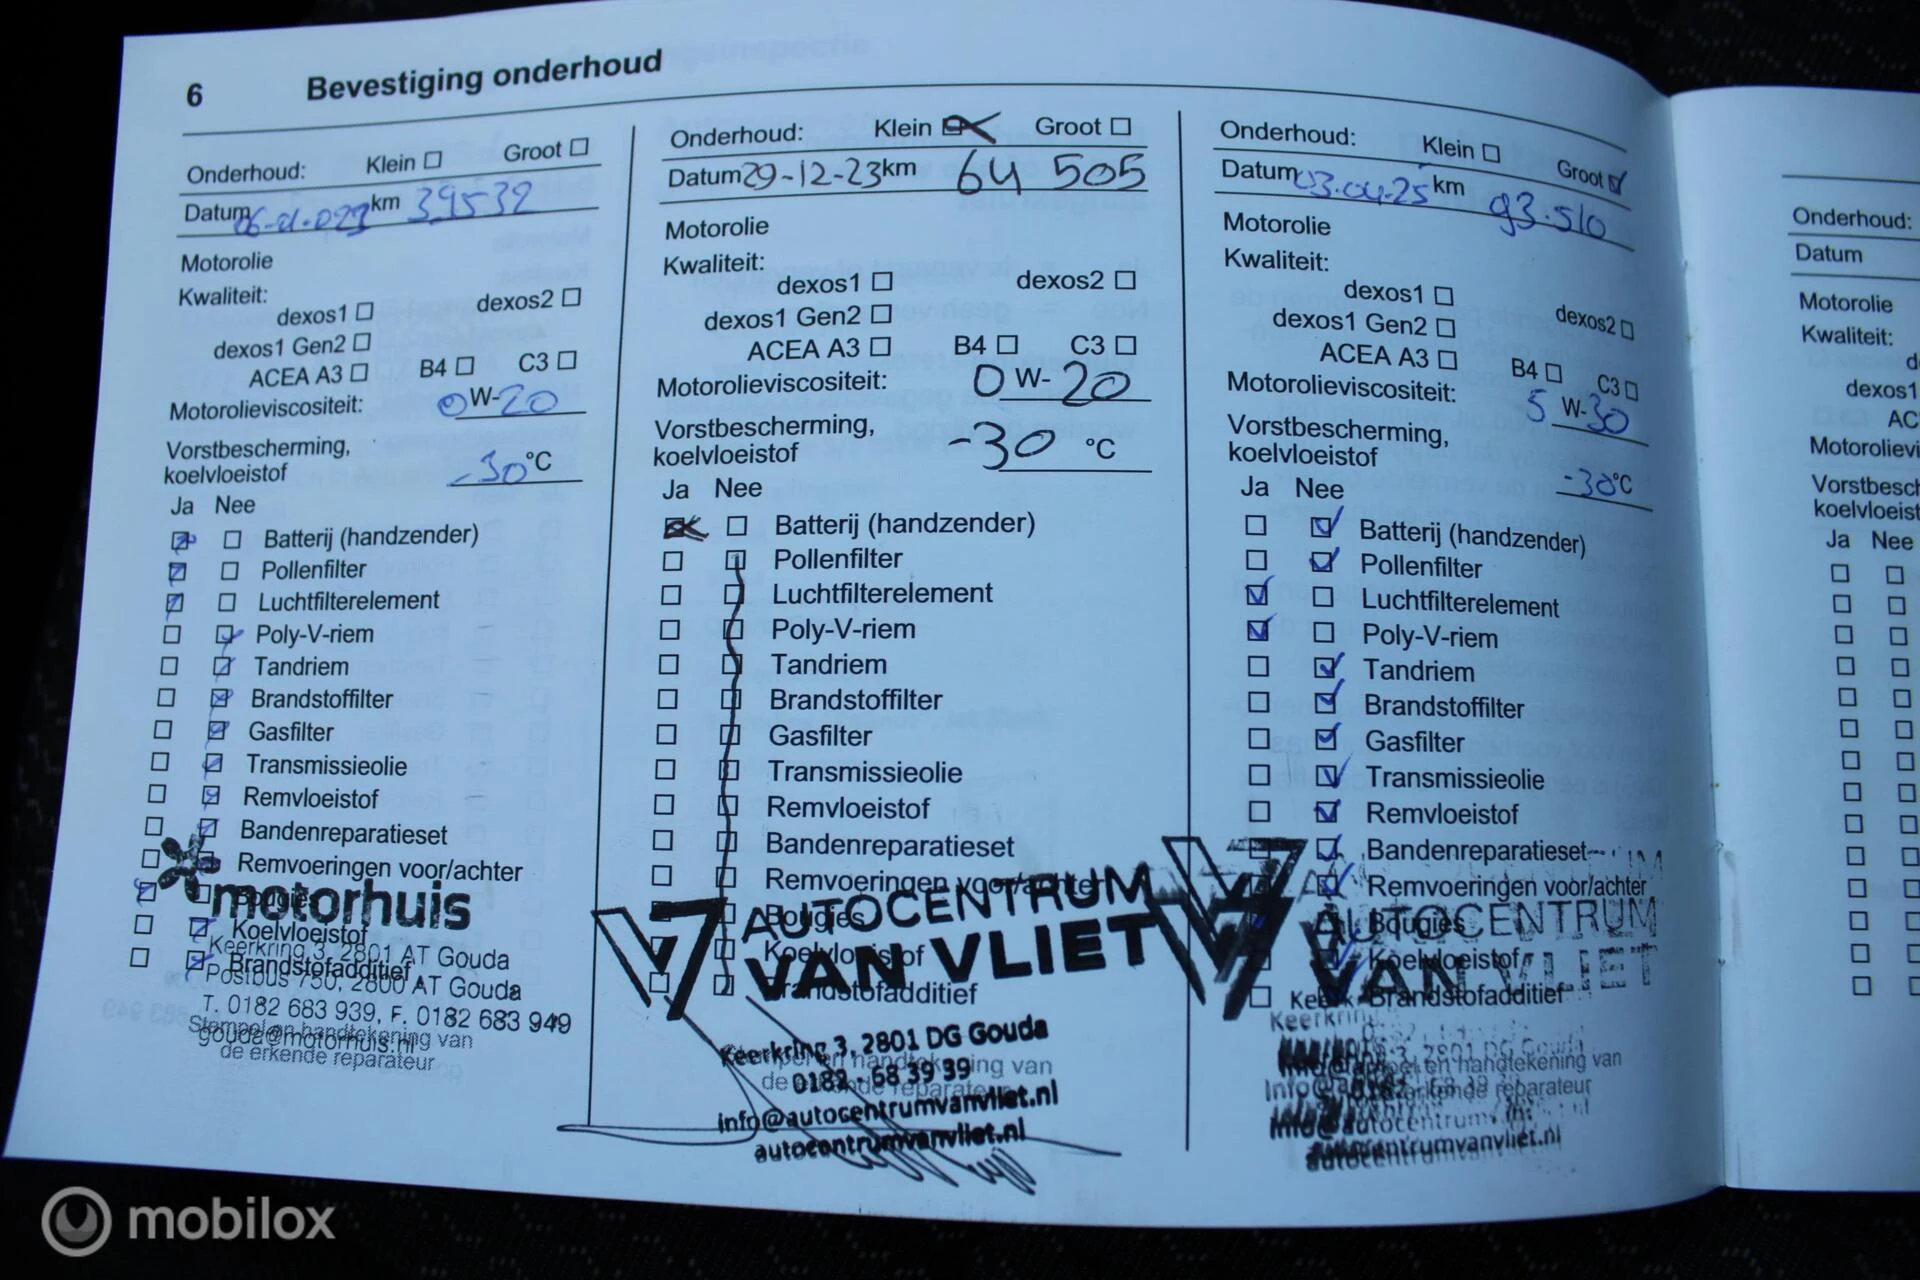 6 Bevestiging onderhoud
Onderhoud: Klein Groot
Datum km 39532
Motorolie
Kwaliteit:
dexos1 dexos2
dexos1 Gen2
ACEA A3 B4 C3
Motorolieviscositeit: 0 W-20
Vorstbescherming,
koelvloeistof -30 °C
Ja Nee
Batterij (handzender)
Pollenfilter
Luchtfilterelement
Poly-V-riem
Tandriem
Brandstoffilter
Gasfilter
Transmissieolie
Remvloeistof
Bandenreparatieset
Remvoeringen voor/achter
Bougies
motorhuis
Koelvloeistof
Keerkring 3, 2801 AT Gouda
Brandstofadditief
Postbus 750, 2800 AT Gouda
T. 0182 683 939, F. 0182 683 949
Stempel en handtekening van
gouda@motorhuis.nl
de erkende reparateur
Onderhoud: Klein Groot
Datum 29-12-23 km 64 505
Motorolie
Kwaliteit:
dexos1 dexos2
dexos1 Gen2
ACEA A3 B4 C3
Motorolieviscositeit: 0 W-20
Vorstbescherming,
koelvloeistof -30 °C
Ja Nee
Batterij (handzender)
Pollenfilter
Luchtfilterelement
Poly-V-riem
Tandriem
Brandstoffilter
Gasfilter
Transmissieolie
Remvloeistof
Bandenreparatieset
Remvoeringen voor/achter
AUTOCENTRUM
Bougies
VAN VLIET
Koelvloeistof
Brandstofadditief
Keerkring 3, 2801 DG Gouda
Stempel en handtekening van
0182 - 68 39 39
de erkende reparateur
info@autocentrumvanvliet.nl
autocentrumvanvliet.nl
Onderhoud: Klein Groot
Datum 03-04-25 km 93.510
Motorolie
Kwaliteit:
dexos1 dexos2
dexos1 Gen2
ACEA A3 B4 C3
Motorolieviscositeit: 5 W-30
Vorstbescherming,
koelvloeistof -30 °C
Ja Nee
Batterij (handzender)
Pollenfilter
Luchtfilterelement
Poly-V-riem
Tandriem
Brandstoffilter
Gasfilter
Transmissieolie
Remvloeistof
Bandenreparatieset
Remvoeringen voor/achter
AUTOCENTRUM
Bougies
VAN VLIET
Koelvloeistof
Brandstofadditief
Stempel en handtekening van
de erkende reparateur
autocentrumvanvliet.nl
Onderhoud:
Datum
Motorolie
Kwaliteit:
dexos1
AC
Motorolievi
Vorstbesch
koelvloeist
Ja Nee
mobilox